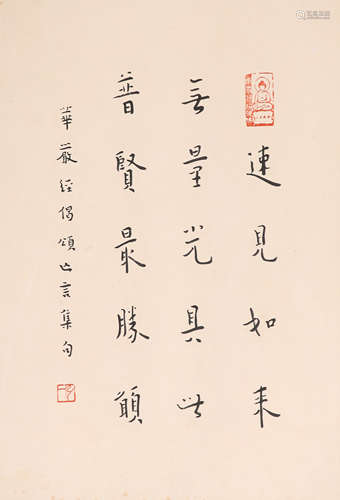 速見如來
無量光具此
普賢最勝願
華嚴經偈頌七言集句